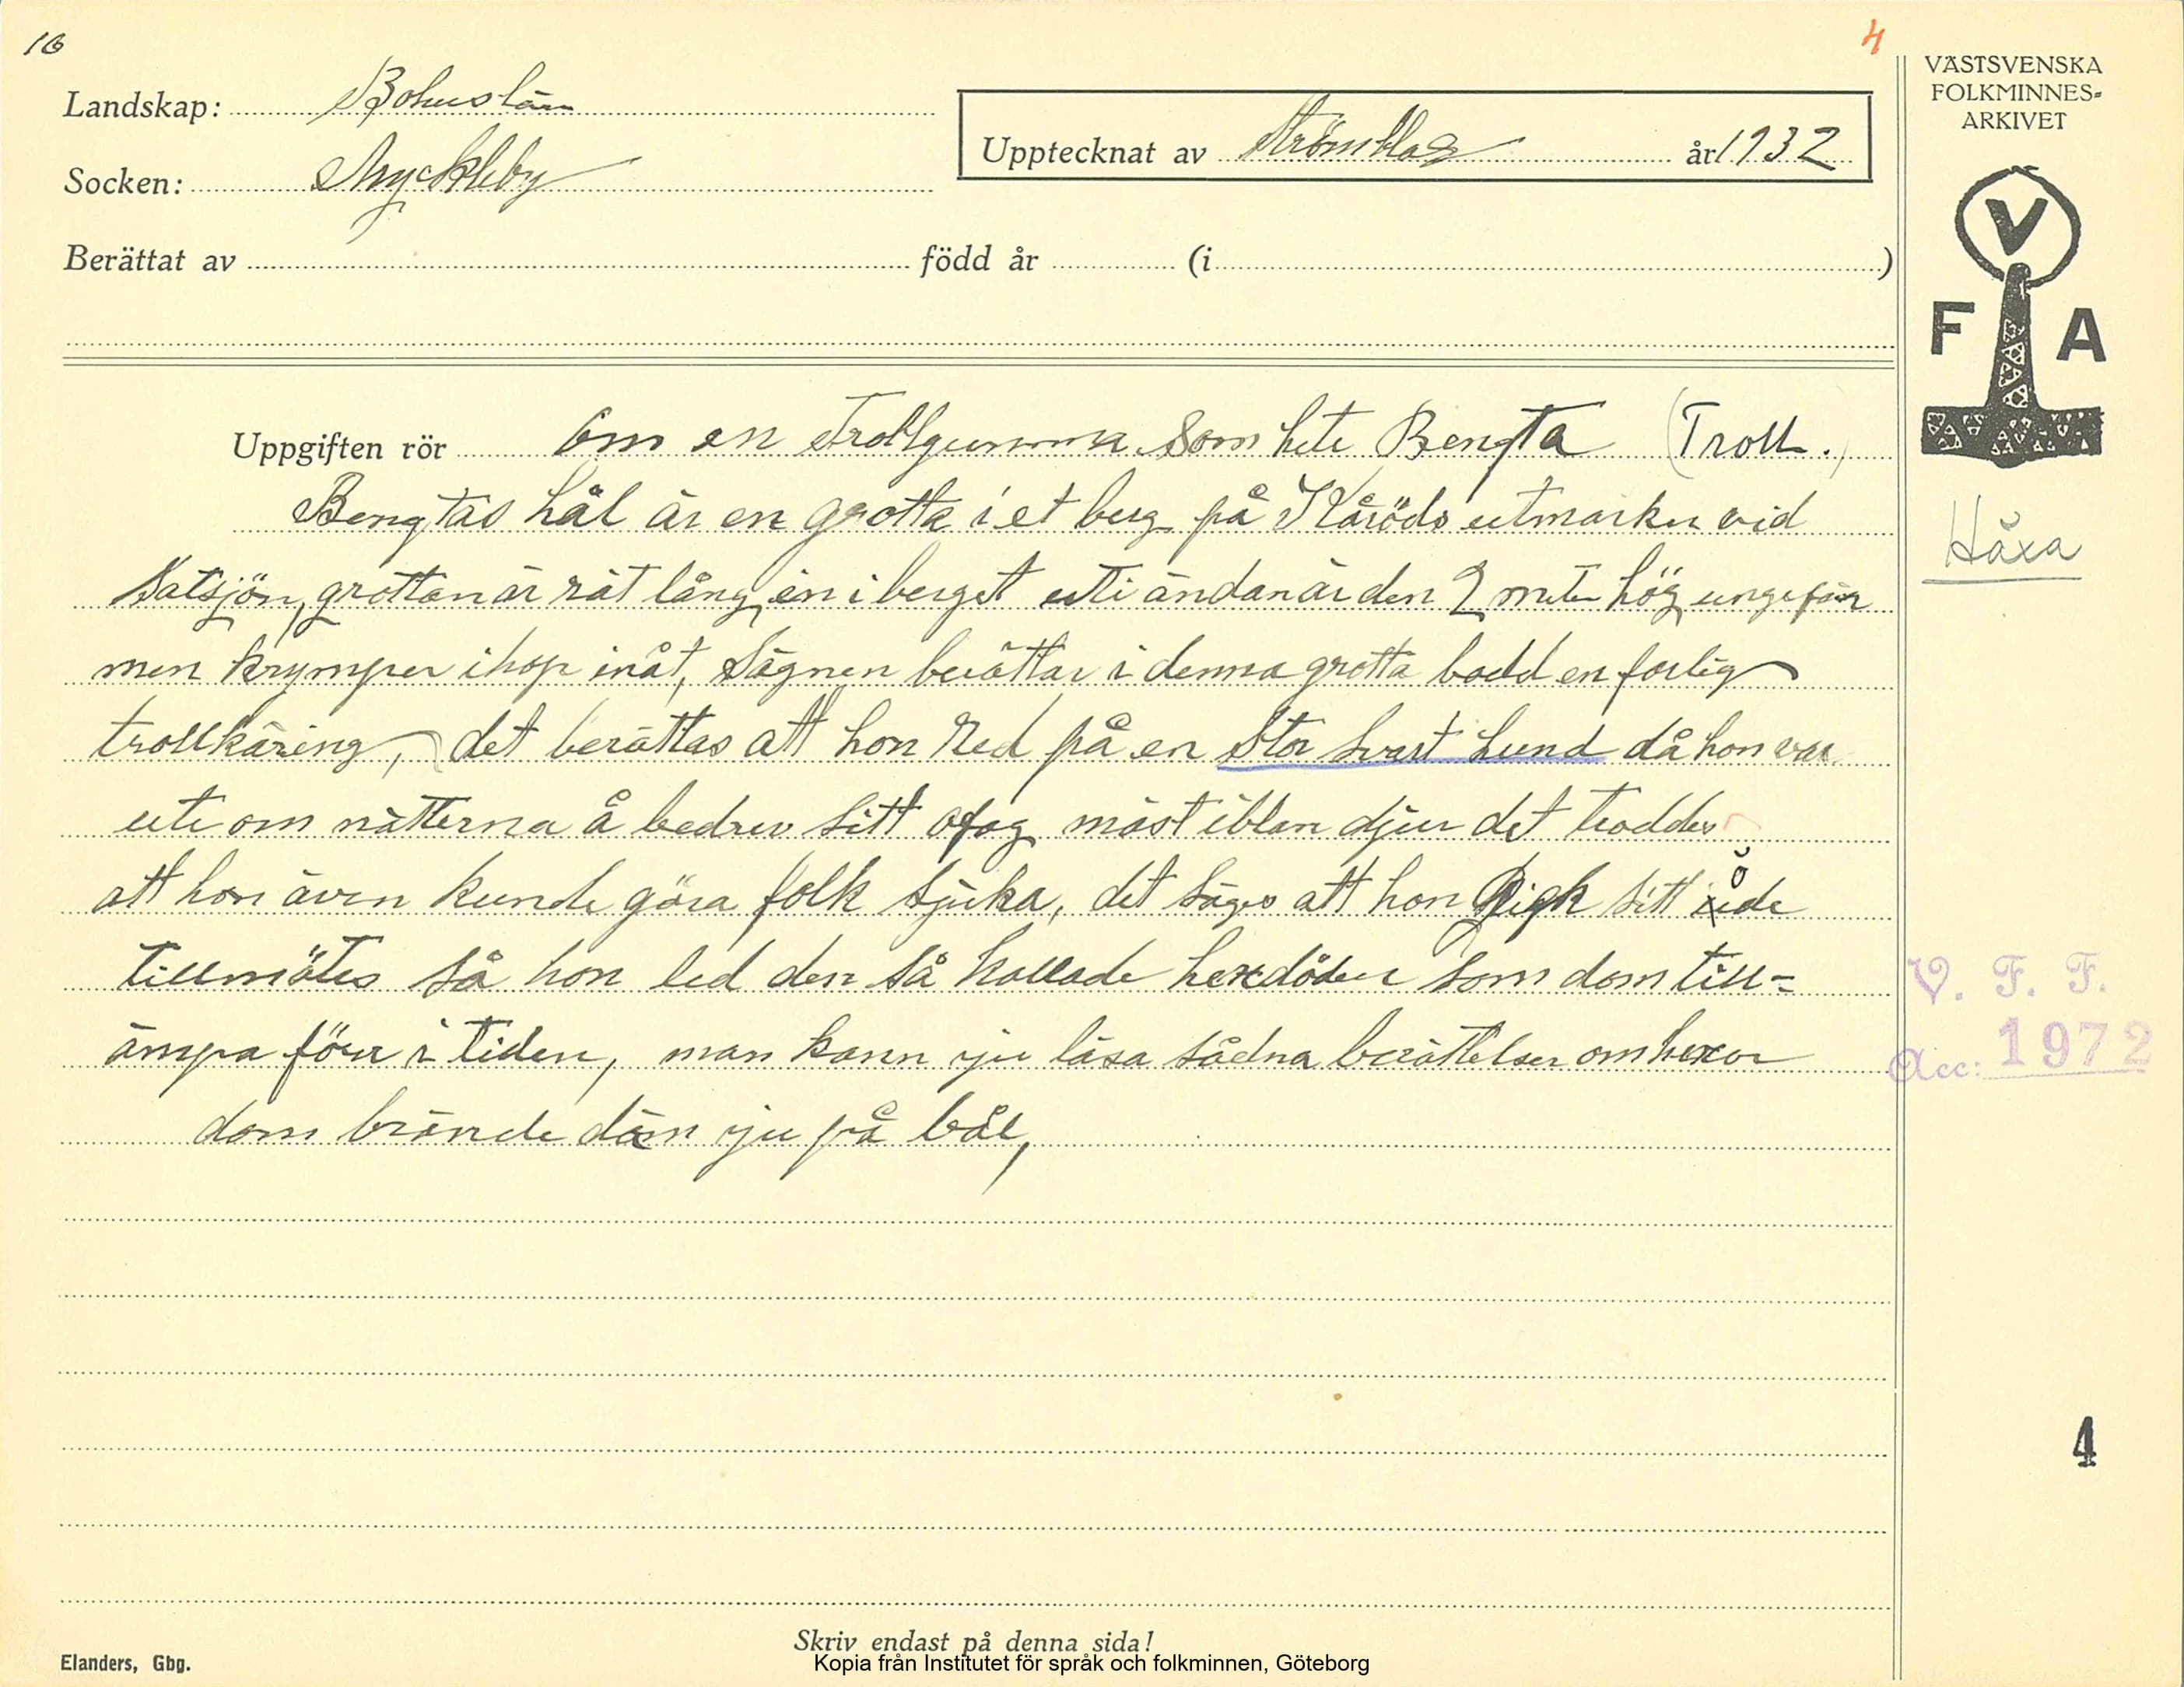 16
4
Landskap: Bohuslän
Socken: Myckleby
Upptecknat av Strömblad år 1932
Berättat av född år (i )
VÄSTSVENSKA
FOLKMINNES-
ARKIVET
V
F A
Uppgiften rör Om en Trollgumma som hete Bengta (Troll.)
Bengtas hål är en grotta i et berg på Kåröds utmarker vid
Häxa
Satsjön, grottan är rät lång in i berget uti ändan är den 2 meter hög ungefär
men krymper ihop inåt, Sägnen berättar i denna grotta bodd en farlig
trollkäring, det berättas att hon red på en stor svart hund då hon var
ute om nätterna å bedrev sitt ofog mäst iblan djur det troddes
att hon även kunde göra folk sjuka, det säges att hon gick sitt öde
tillmötes så hon led den så kallade hexdöden som dom till=
ämpa förr i tiden, man kann ju läsa sådna berättelser om hexor
dom brände däm ju på bål,
V. F. F.
Acc: 1972
4
Skriv endast på denna sida!
Elanders, Gbg.
Kopia från Institutet för språk och folkminnen, Göteborg